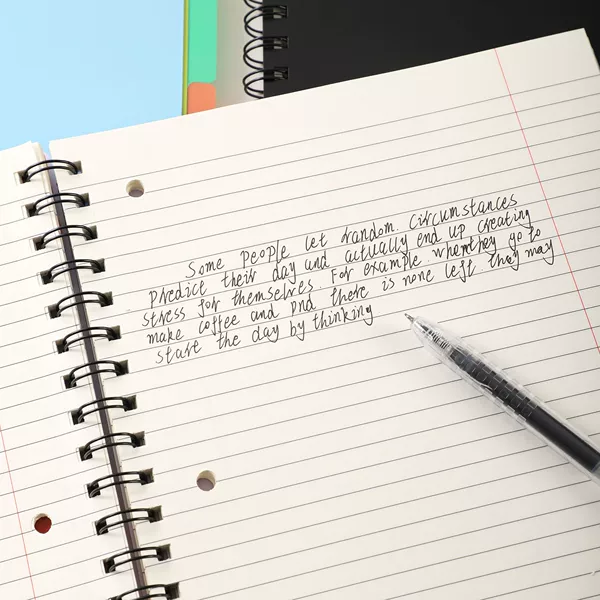 Some people let random. Circumstances
predict their day and actually end up creating
stress for themselves. For example. when they go to
make coffee and pnd there is none left. they may
start the day by thinking